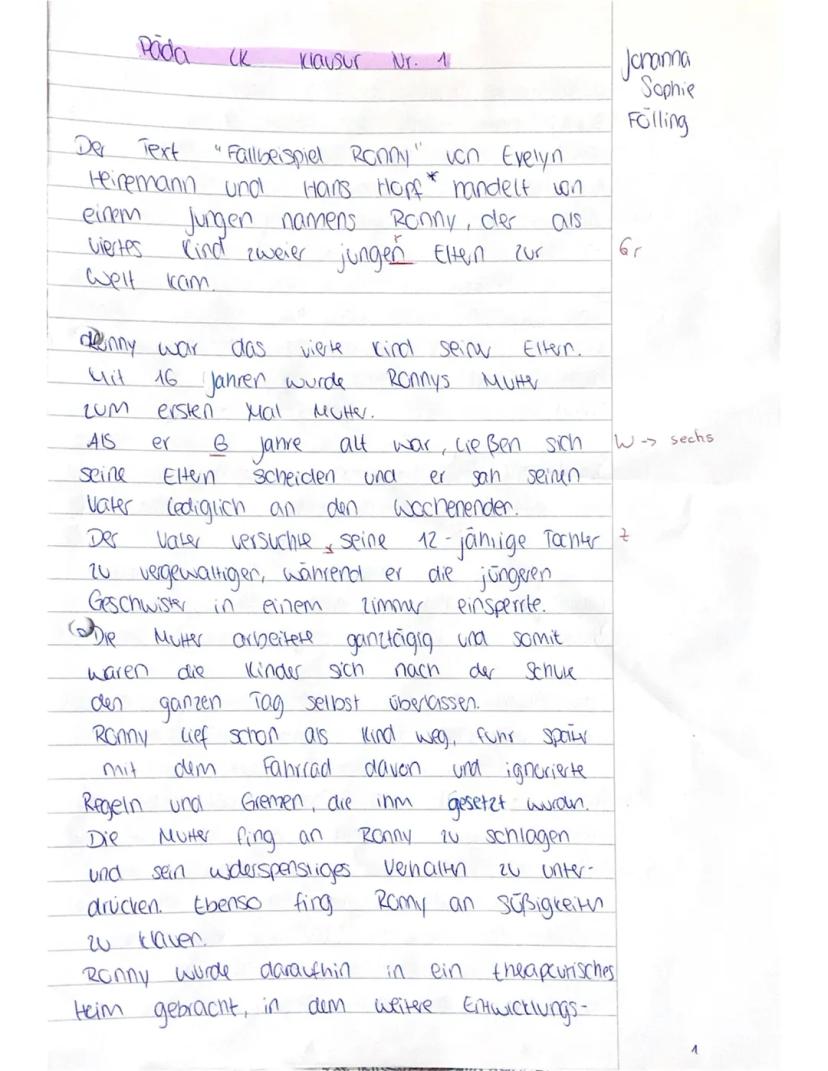 Päda LK Klausur Nr. 1
Johanna
Sophie
Fölling
Der Text "Fallbeispiel Ronny" von Evelyn
Heinemann und Hans Hopf* handelt von
einem Jungen namens Ronny, der als
viertes Kind zweier jungen Eltern zur
r
Gr
Welt kam.
Ronny war das vierte Kind seiner Eltern.
Mit 16 Jahren wurde Ronnys Mutter
zum ersten Mal Mutter.
Als er 6 Jahre alt war, ließen sich
W -> sechs
seine Eltern scheiden und er sah seinen
Vater lediglich an den Wochenenden.
Der Vater versuchte, seine 12-jährige Tochter
Z
zu vergewaltigen, während er die jüngeren
Geschwister in einem Zimmer einsperrte.
Die Mutter arbeitete ganztägig und somit
waren die Kinder sich nach der Schule
den ganzen Tag selbst überlassen.
Ronny lief schon als Kind weg, fuhr später
mit dem Fahrrad davon und ignorierte
Regeln und Grenzen, die ihm gesetzt wurden.
Die Mutter fing an Ronny zu schlagen
und sein widerspenstiges Verhalten zu unter-
drücken. Ebenso fing Ronny an Süßigkeiten
zu klauen.
Ronny wurde daraufhin in ein therapeutisches
Heim gebracht, in dem weitere Entwicklungs-
1